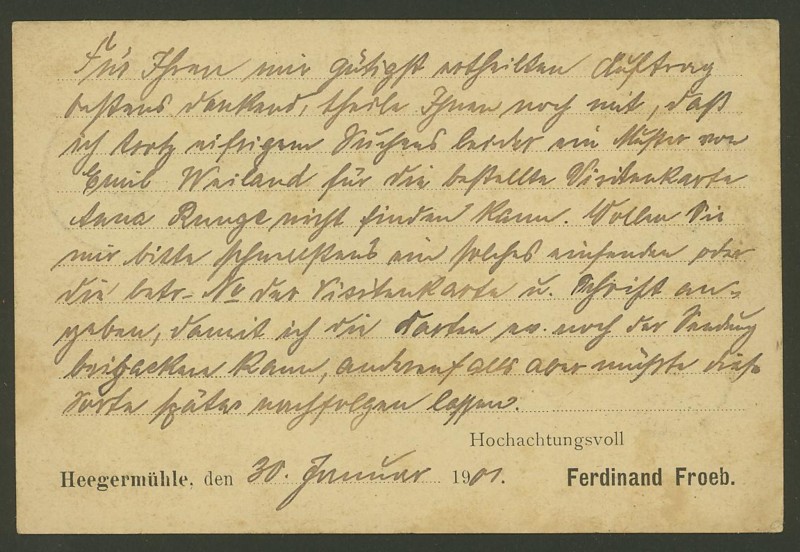 Für Ihren mir gütigst ertheilten Auftrag
bestens dankend, theile Ihnen noch mit, daß
ich trotz eifrigem Suchens leider ein Muster von
Emil Weiland für die bestellte Visitenkarte
Anna Runge nicht finden kann. Wollen Sie
mir bitte schnellstens ein solches einsenden oder
die betr. No der Visitenkarte u. Schrift an-
geben, damit ich die Karten ev. noch der Sendung
beipacken kann, anderenfalls aber müßte diese
Sorte später nachfolgen lassen.
Hochachtungsvoll
Heegermühle, den 30. Januar 1901. Ferdinand Froeb.